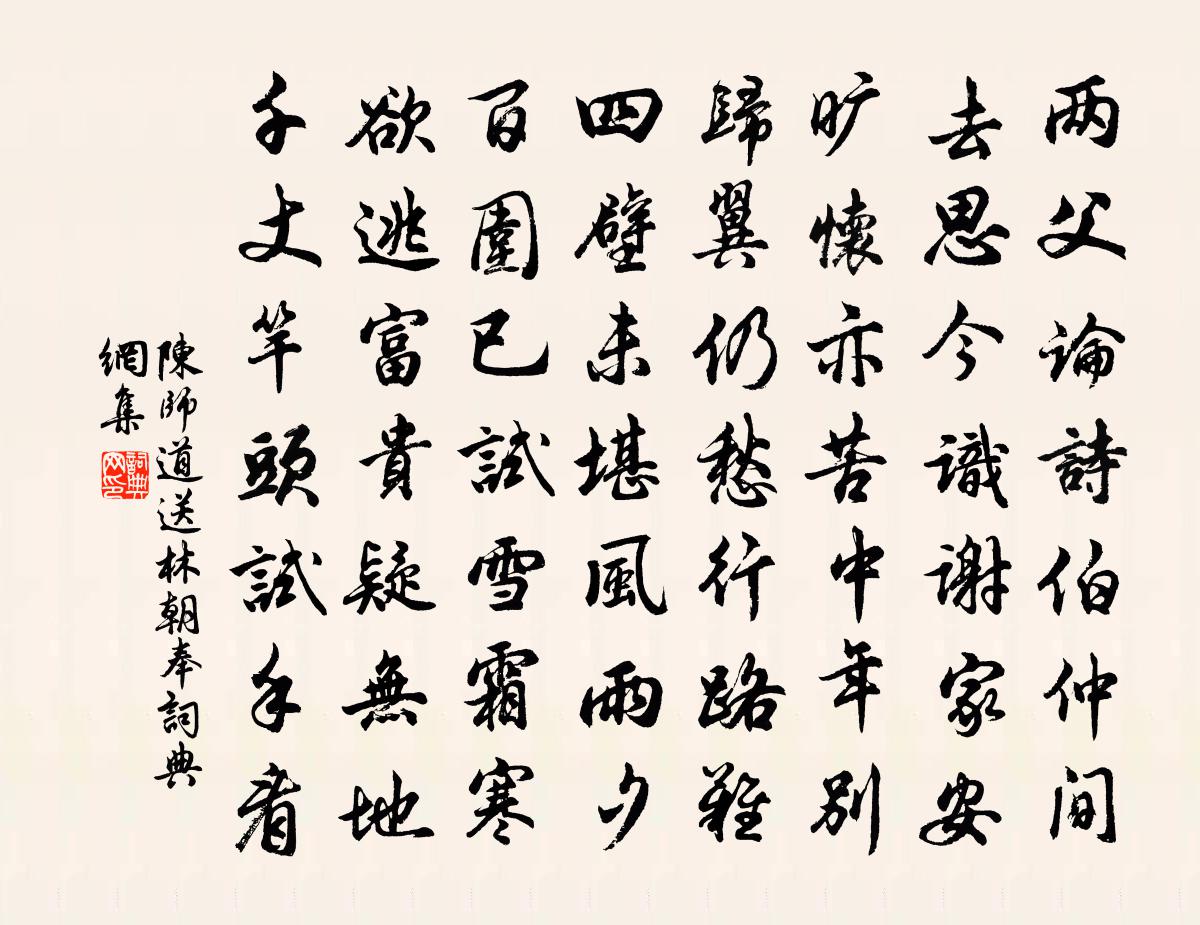 两父論詩伯仲間
去思今識謝家安
旷懷亦苦中年別
歸翼仍愁行路難
四壁未堪風雨夕
百圍已試雪霜寒
欲逃富貴疑無地
千丈竿頭試手看
陳師道送林朝奉詞典
網集
詞典
网印